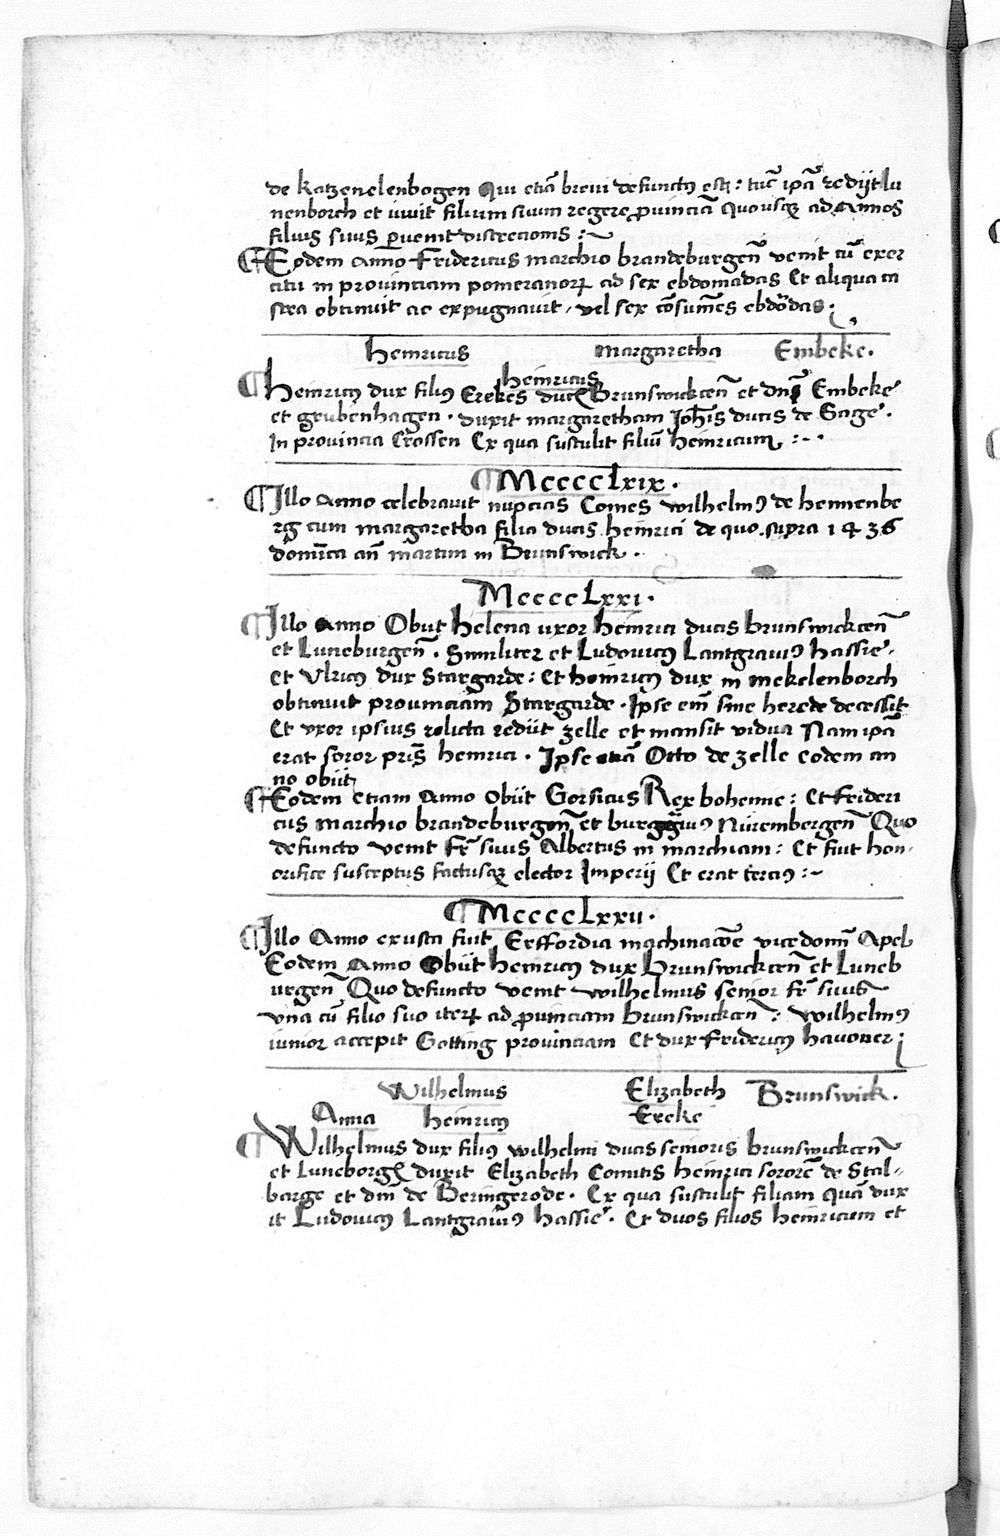 de Katzenelenbogen Qui etiā breui defunctꝰ est : tūc ip̄a redijt lu
nenborch et iuuit filium suum regere ꝓuinciā Quousqꝫ ad Annos
filius suus ꝑuenit discrecionis :~
¶ Eodem Anno Fridericus marchio brandeburgen̄ venit cū exer
citu in prouinciam pomeranorꝝ ad sex ebdomadas Et aliqua ca
stra obtinuit ac expugnauit, vel sex
Heinricus Margaretha Embeke.
Heinricus
¶ Heinricꝰ dux filiꝰ Erekes Brunswickcen̄ et Embeke
et grubenhagen . duxit margaretham Joh̄is ducis de Sage .
In prouincia Crossen Ex qua sustulit filiū heinricum :..
¶ MccccLxix .
¶ Illo Anno celebrauit nupcias Comes wilhelmꝰ de hennenbe
rg cum margaretha filia ducis heinrici de quo supra 1436
domīca an̄ martini in Brunswick .
MccccLxxi .
¶ Illo Anno Obijt Helena uxor heinrici ducis brunswickcen̄
et Luneburgen̄ . Similiter et Ludouicꝰ Lantgrauiꝰ hassie .
Et Vlricꝰ dux Stargarde : Et heinricꝰ dux in mekelenborch
obtinuit prouinciam Stargarde . Ipse em̄ sine herede decessit
Et vxor ipsius relicta redijt zelle et mansit vidua Nam ip̄a
erat soror pris̄ heinrici . Ipse etiā Otto de zelle eodem an
no obijt
¶ Eodem etiam Anno Obijt Gorsicus Rex bohemie : Et frideri
cus marchio brandeburgen̄ et Nürembergen̄ Quo
defuncto venit fr̄ suus Albertus in marchiam : Et fuit hon-
orifice susceptus factusqꝫ elector Imperij Et erat terciꝰ :~
¶ MccccLxxii .
¶ Illo Anno exusta fuit Erffordia machinacōe vicedomī Apel
Eodem Anno Obijt heinricꝰ dux Brunswickcen̄ et Luneb
urgen̄ Quo defuncto venit wilhelmus senior fr̄ suus
vna cū filio suo iterꝝ ad ꝓuinciam brunswickcen̄ : wilhelmꝰ
iunior accepit Gotting prouinciam Et dux fridericꝰ hauouer ;
Wilhelmus Elizabeth Brunswick .
Anna heinricꝰ Ereke
¶ Wilhelmus dux filiꝰ wilhelmi ducis senioris brunswickcen̄
et Luneborgen̄ duxit Elizabeth Comitis heinrici sororē de Stal-
berge et dni de Beringerode . Ex qua sustulit filiam quā dux
it Ludouicꝰ Lantgrauiꝰ hassie . Et duos filios heinricum et